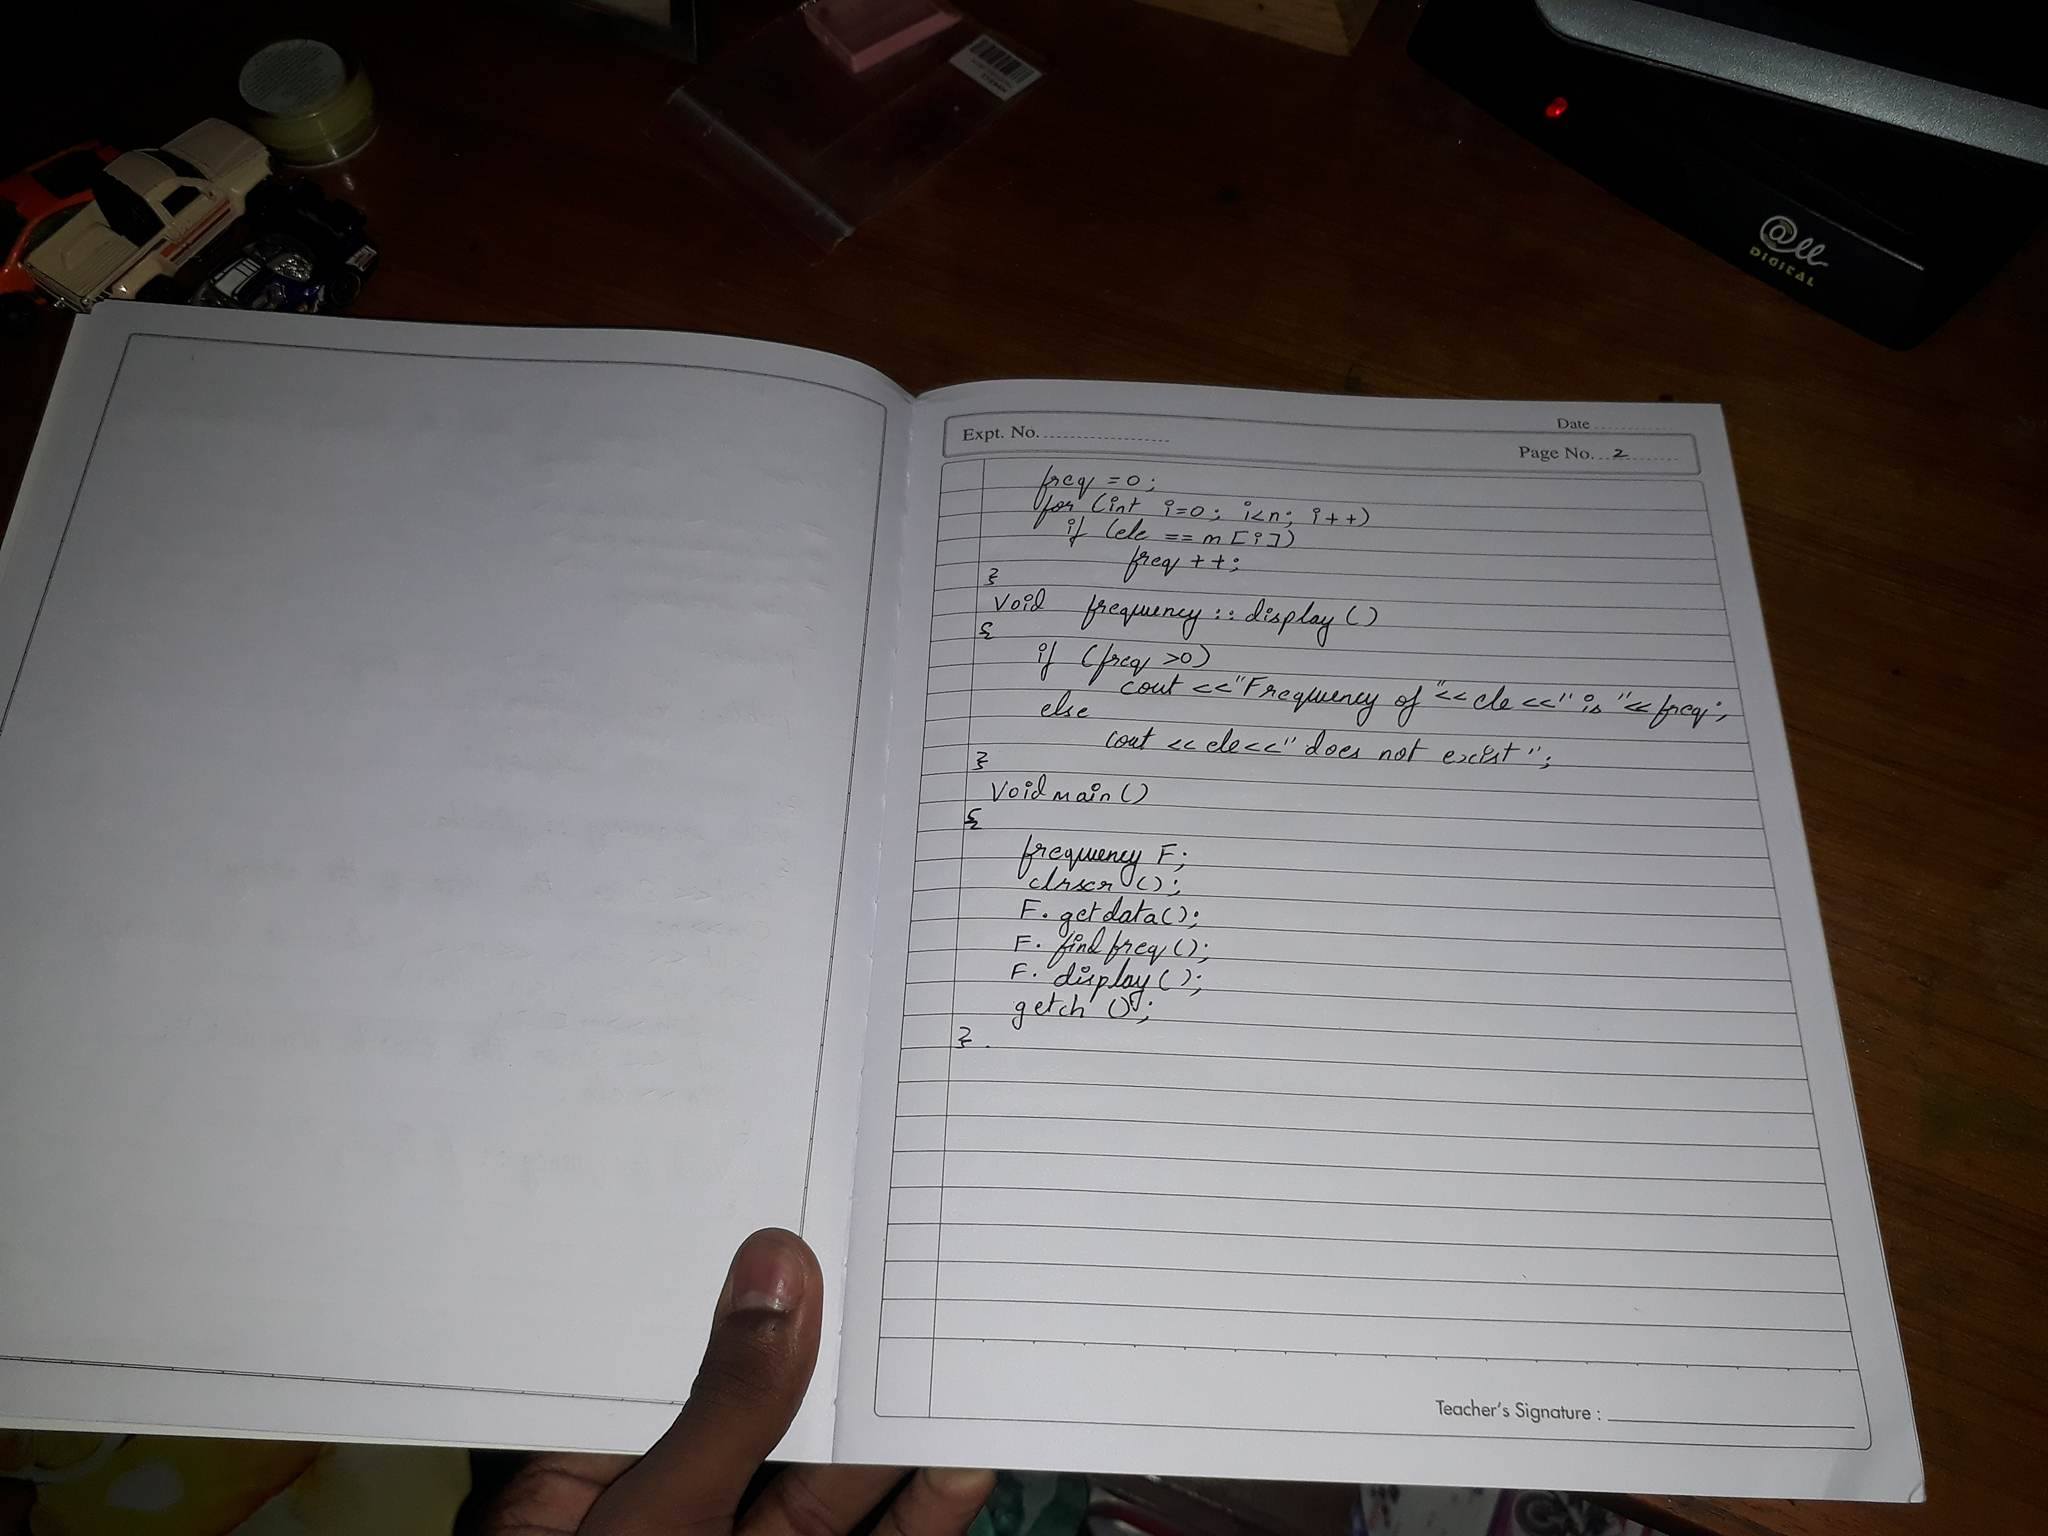 @ll
DIGITAL
Expt. No.
Date
Page No. 2
freq =0;
for (int i=0; i<n; i++)
if (ele == m[i])
freq ++;
}
void frequency :: display ()
{
if (freq >0)
cout <<"Frequency of "<< ele <<" is "<< freq;
else
cout << ele<<" does not exist";
}
void main ()
{
frequency F;
clrscr ();
F. getdata();
F. findfreq ();
F. display ();
getch ();
}.
Teacher's Signature :